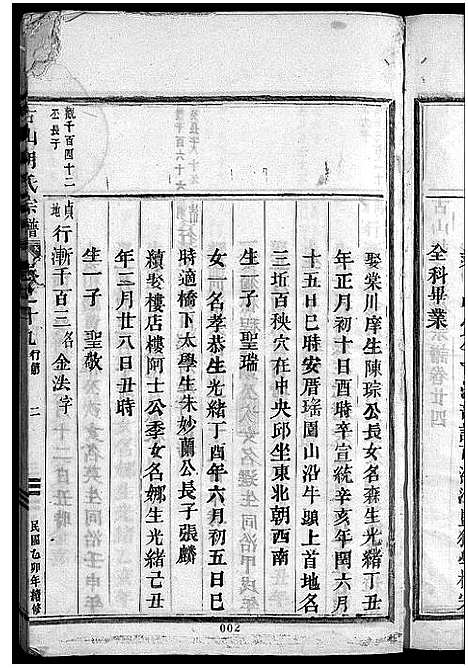 全科畢業
娶棠川庠生陳琮公長女名森生光緒丁丑
年正月初十日酉時卒宣統辛亥年閏六月
十五日巳時安厝瑤園山沿牛頭上首地名
三坵百秧穴在中央邱坐東北朝西南
生一子 聖瑞
女一名孝恭生光緒丁酉年六月初五日巳
時適橋下太學生朱妙蘭公長子張麟
續娶樓店樓阿士公季女名娜生光緒己丑
年三月廿八日丑時
生一子 聖敬
貞地 行漸千百三 名金法字
古山胡氏宗譜
行第 二
民國乙卯年續修
002